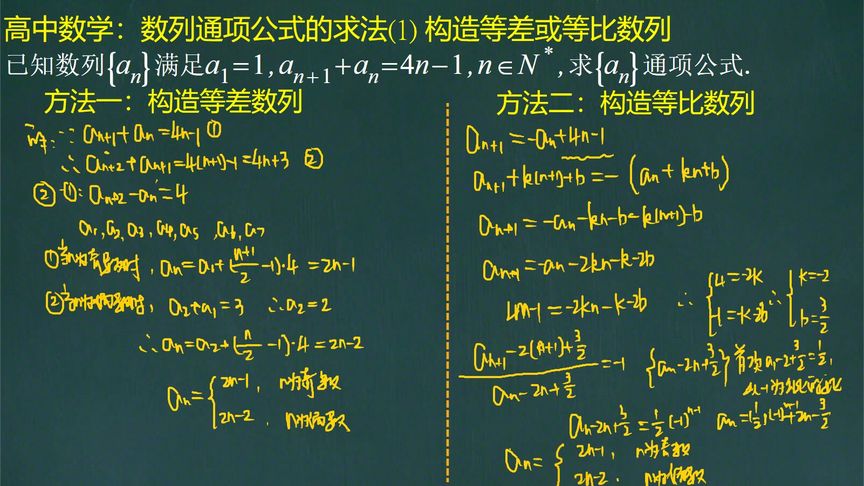 高中数学：数列通项公式的求法(1) 构造等差或等比数列
已知数列{aₙ}满足a₁=1,aₙ₊₁+aₙ=4n−1,n∈N*,求{aₙ}通项公式.
方法一：构造等差数列
∵ aₙ₊₁+aₙ=4n-1 ①
∴ aₙ₊₂+aₙ₊₁=4(n+1)-1=4n+3 ②
②-①: aₙ₊₂-aₙ=4
a₁,a₂,a₃,a₄,a₅,a₆,a₇
①当n为奇数时, aₙ=a₁+(n+1/2-1)·4=2n-1
②当n为偶数时, a₂+a₁=3 ∴a₂=2
∴ aₙ=a₂+(n/2-1)·4=2n-2
aₙ={2n-1, n为奇数
2n-2, n为偶数
方法二：构造等比数列
aₙ₊₁=-aₙ+4n-1
aₙ₊₁+k(n+1)+b=-(aₙ+kn+b)
aₙ₊₁=-aₙ-kn-b-k(n+1)-b
aₙ₊₁=-aₙ-2kn-k-2b
4n-1=-2kn-k-2b ∴{4=-2k ∴{k=-2
-1=-k-2b b=3/2
aₙ₊₁-2(n+1)+3/2 / aₙ-2n+3/2 =-1 {aₙ-2n+3/2}首项a₁-2+3/2=1/2,
以-1为公比的等比
aₙ-2n+3/2=1/2(-1)ⁿ⁻¹ aₙ=(1/2)(-1)ⁿ⁻¹+2n-3/2
aₙ={2n-1, n为奇数
2n-2, n为偶数